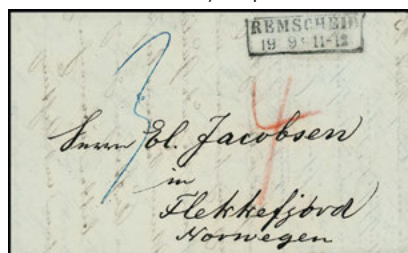 REMSCHEID
19 9 11-12
3
4
Herrn El. Jacobsen
in
Flekkefjord
Norwegen